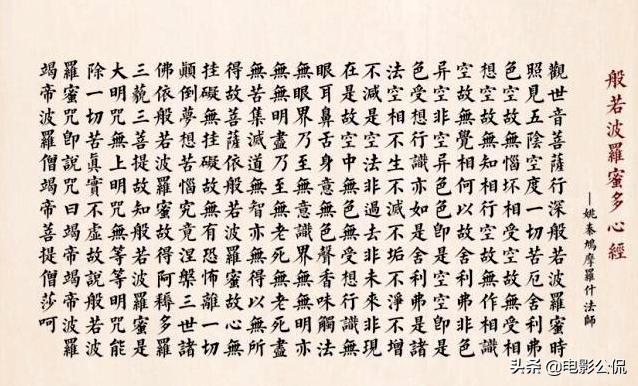 般若波羅蜜多心經
——姚秦鳩摩羅什法師
觀世音菩薩行深般若波羅蜜時
照見五陰空度一切苦厄舍利弗
色空故無惱坏相受空故無受相
想空故無知相行空故無作相識
空故無覺相何以故舍利弗非色
异空非空异色色即是空空即是
色受想行識亦如是舍利弗是諸
法空相不生不滅不垢不淨不增
不減是空法非過去非未來非現
在是故空中無色無受想行識無
眼耳鼻舌身意無色聲香味觸法
無眼界乃至無意識界無無明亦
無無明盡乃至無老死無老死盡
無苦集滅道無智亦無得以無所
得故菩薩依般若波羅蜜故心無
挂礙無挂礙故無有恐怖離一切
顛倒夢想苦惱究竟涅槃三世諸
佛依般若波羅蜜故得阿耨多羅
三藐三菩提故知般若波羅蜜是
大明咒無上明咒無等等明咒能
除一切苦眞實不虛故說般若波
羅蜜咒即說咒曰竭帝竭帝波羅
竭帝波羅僧竭帝菩提僧莎呵
头条 @电影公侃